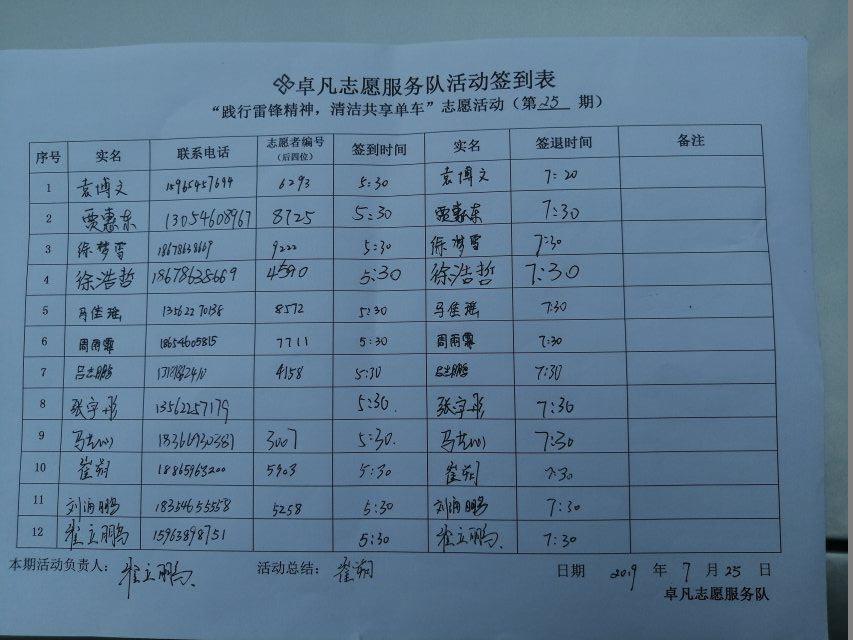 卓凡志愿服务队活动签到表
“践行雷锋精神，清洁共享单车”志愿活动（第25期）
序号 实名 联系电话 志愿者编号（后四位） 签到时间 实名 签退时间 备注
1 袁博文 15965457694 6293 5:30 袁博文 7:20
2 贾惠东 13054608967 8725 5:30 贾惠东 7:30
3 徐梦雪 18678638669 9222 5:30 徐梦雪 7:30
4 徐浩哲 18678638669 4590 5:30 徐浩哲 7:30
5 马佳瑶 13562270138 8572 5:30 马佳瑶 7:30
6 周雨霏 18654605815 7711 5:30 周雨霏 7:30
7 吕志鹏 4158 5:30 吕志鹏 7:30
8 张宇彤 13562257179 5:30 张宇彤 7:30
9 3007 5:30 7:30
10 崔朔 18865963200 5903 5:30 崔朔 7:30
11 刘海鹏 18354655558 5258 5:30 刘海鹏 7:30
12 崔立鹏 15963898751 5:30 崔立鹏 7:30
本期活动负责人：崔立鹏 活动总结：崔朔 日期 2019 年 7 月 25 日
卓凡志愿服务队